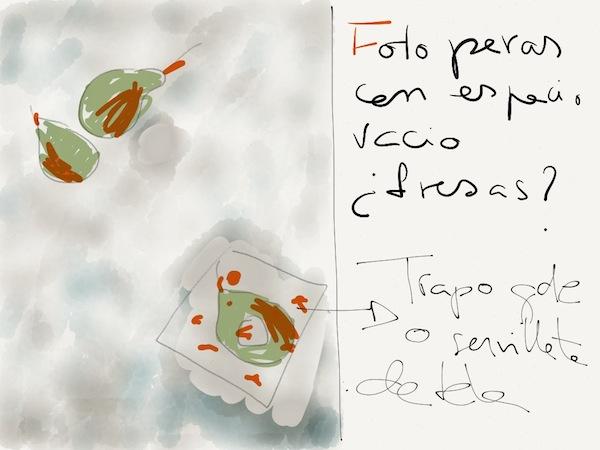 Foto peras
con espacio
vacio
¿fresas?
Trapo gde
o servilleta
de tela